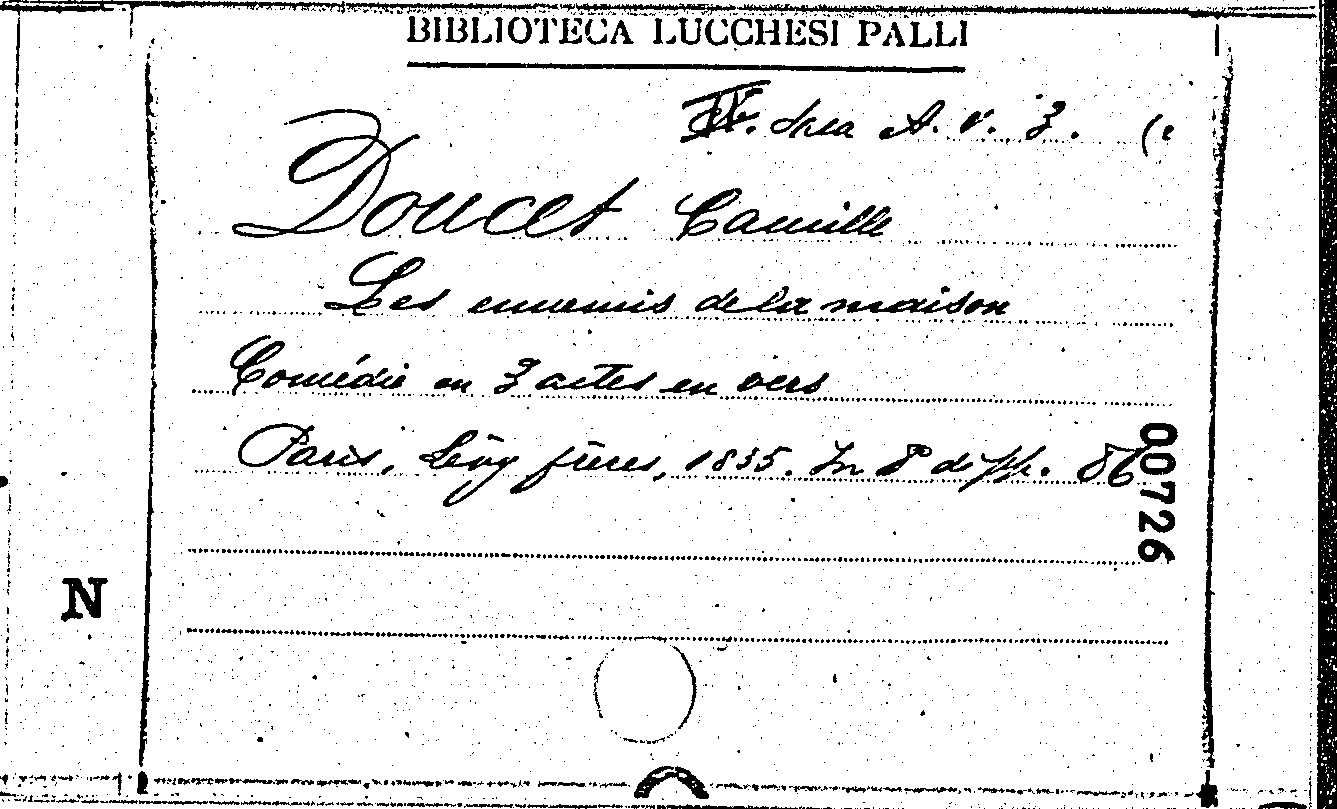 BIBLIOTECA LUCCHESI PALLI
IV. Area A. v. 3. (
Doucet Camille
Les ennemis de la maison
Comédie en 3 actes en vers
Paris, Lévy frères, 1855. In 8° di pp. 86
00726
N